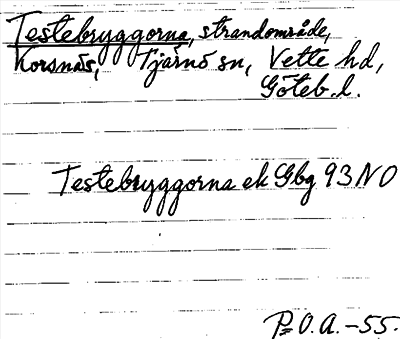 Testebryggorna, strandområde,
Korsnäs, Tjärnö sn, Vette hd,
Göteb. l.
Testebryggorna ek Gbg 93 NO
P=O.A.-55.